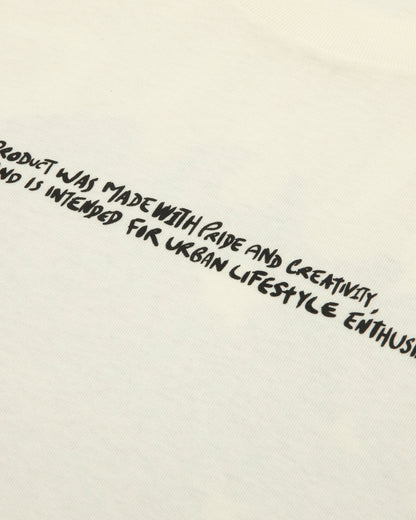 PRODUCT WAS MADE WITH PRIDE AND CREATIVITY,
AND IS INTENDED FOR URBAN LIFESTYLE ENTHUSI